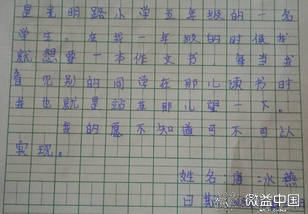 是光明路小学五年级的一名
学生。在我一年级的时候我
就想要一本作文书 每当我
看见别的同学在那儿读书时
我也就是站在那儿望一下。
我的愿不知道可不可以
实现。
姓名 冰燕
日期
微益中国